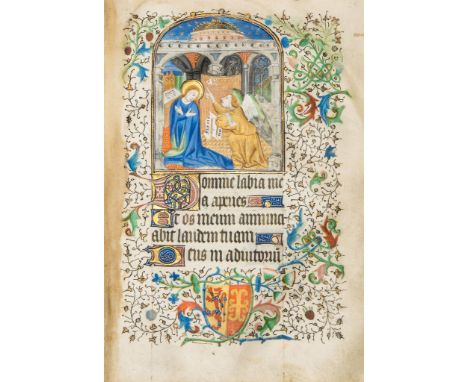 Domine labia me
a aperies
Et os meum annunci
abit laudem tuam
Deus in adiutoriū